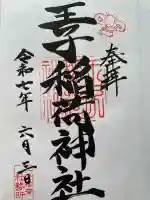 奉拝
王子稲荷神社
令和七年 六月三日